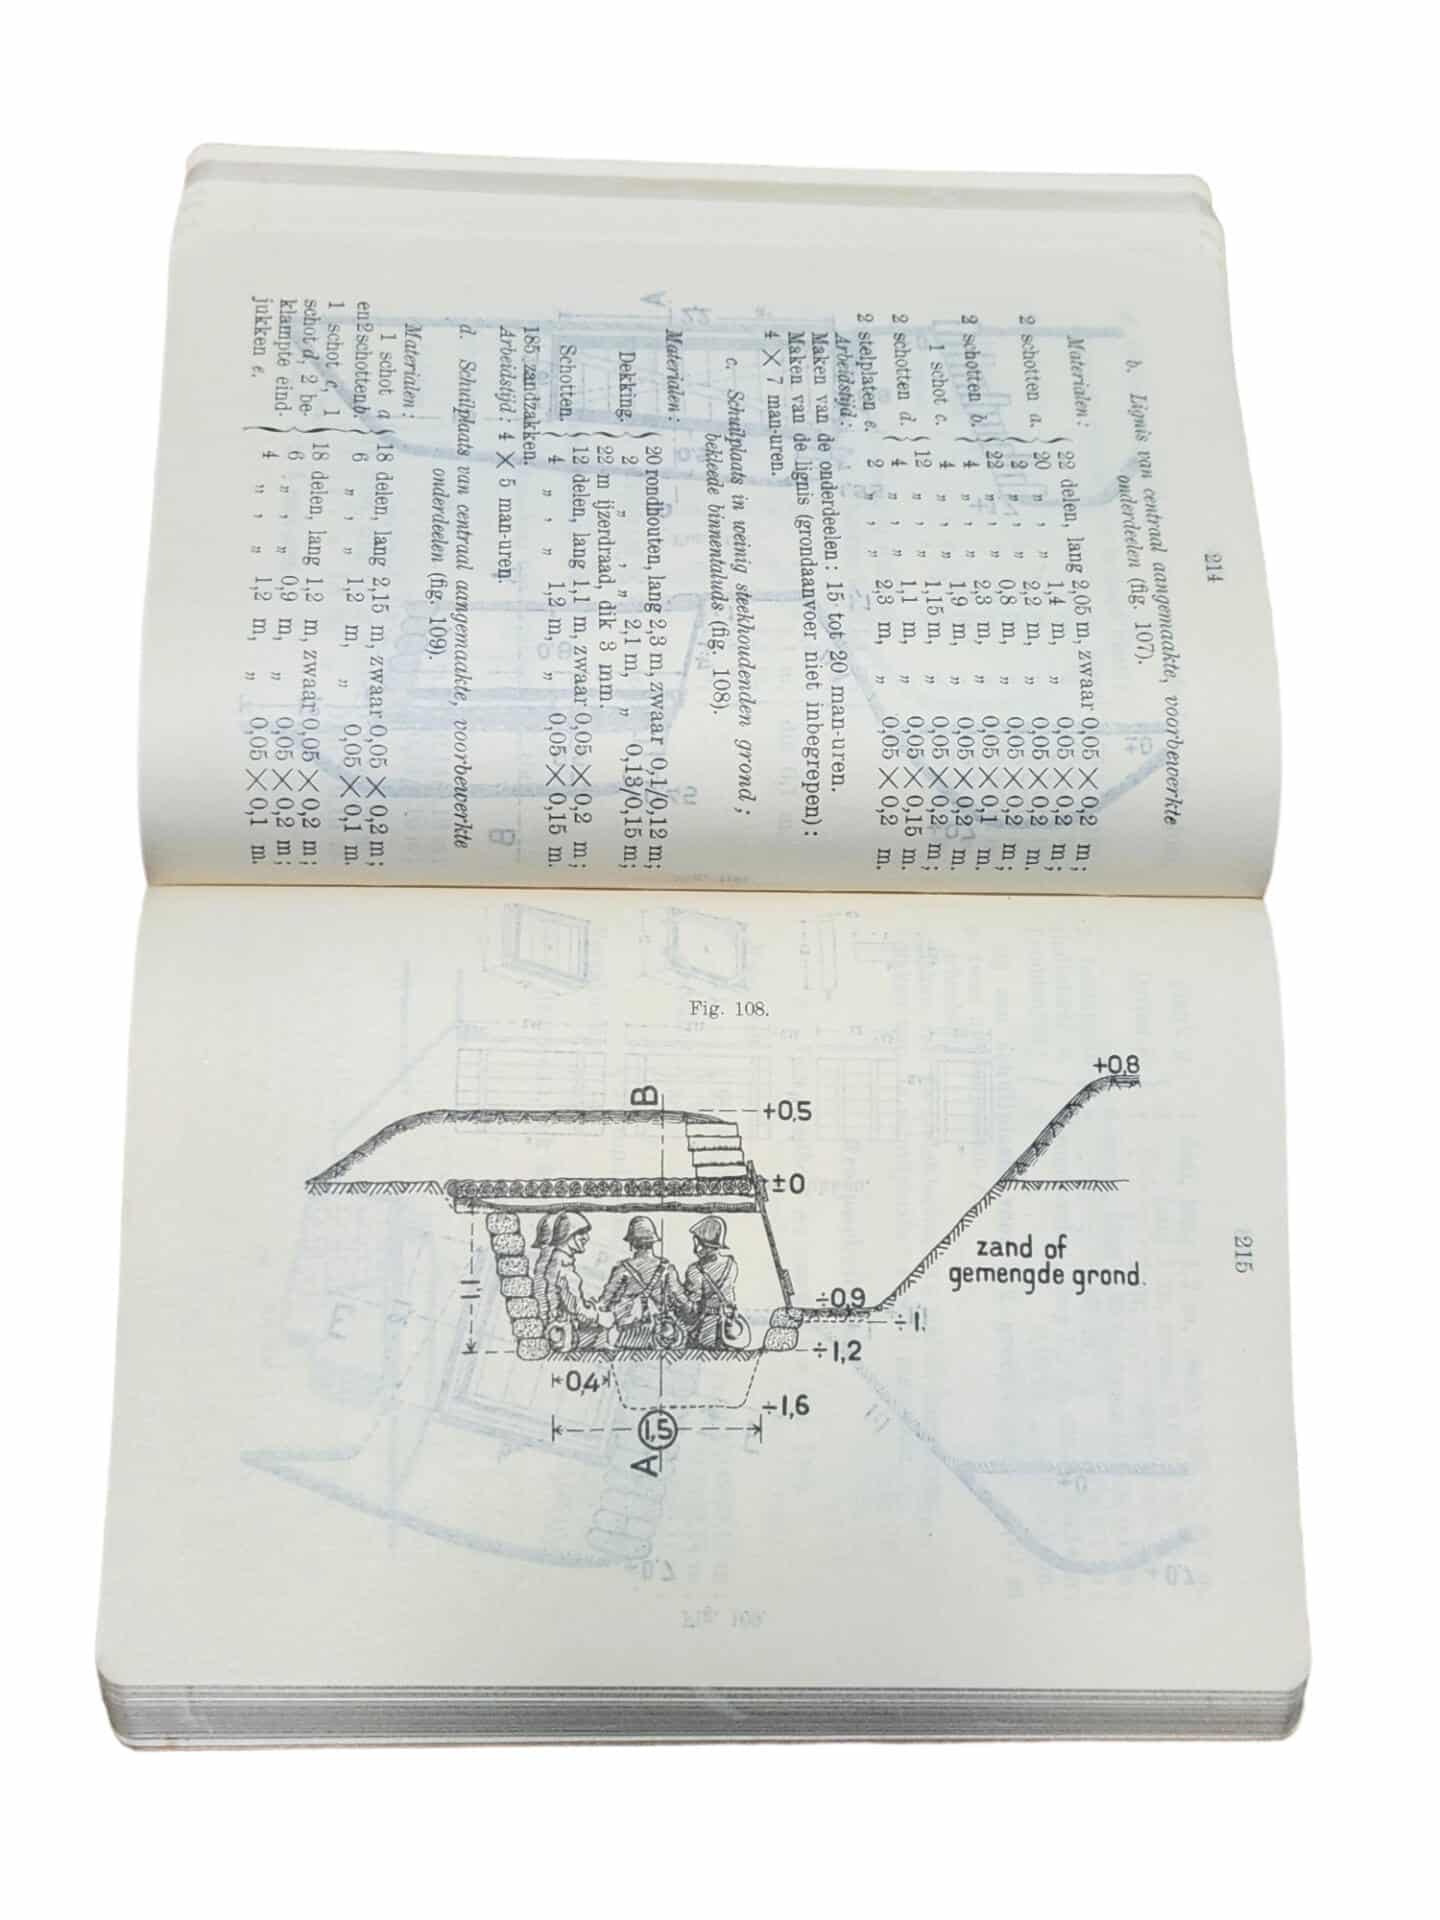 214
b. Lignis van centraal aangemaakte, voorbewerkte
onderdeelen (fig. 107).
Materialen:
2 schotten a. { 22 delen, lang 2,05 m, zwaar 0,05 × 0,2 m;
20 „ , „ 1,4 m, „ 0,05 × 0,2 m;
2 „ , „ 2,2 m, „ 0,05 × 0,2 m.
2 schotten b. { 22 „ , „ 0,8 m, „ 0,05 × 0,2 m;
4 „ , „ 2,3 m, „ 0,05 × 0,1 m.
1 schot c. 4 „ , „ 1,9 m, „ 0,05 × 0,2 m.
2 schotten d. { 12 „ , „ 1,15 m, „ 0,05 × 0,2 m;
4 „ , „ 1,1 m, „ 0,05 × 0,15 m.
2 stelplaten e. 2 „ , „ 2,3 m, „ 0,05 × 0,2 m.
Arbeidstijd:
Maken van de onderdeelen: 15 tot 20 man-uren.
Maken van de lignis (grondaanvoer niet inbegrepen):
4 × 7 man-uren.
c. Schuilplaats in weinig steekhoudenden grond;
bekleede binnentaluds (fig. 108).
Materialen:
Dekking. { 20 rondhouten, lang 2,3 m, zwaar 0,1/0,12 m;
2 „ , „ 2,1 m, „ 0,13/0,15 m;
22 m ijzerdraad, dik 3 mm.
Schotten. { 12 delen, lang 1,1 m, zwaar 0,05 × 0,2 m;
4 „ , „ 1,2 m, „ 0,05 × 0,15 m.
185 zandzakken.
Arbeidstijd: 4 × 5 man-uren.
d. Schuilplaats van centraal aangemaakte, voorbewerkte
onderdeelen (fig. 109).
Materialen:
1 schot a { 18 delen, lang 2,15 m, zwaar 0,05 × 0,2 m;
en 2 schotten b. 6 „ , „ 1,2 m, „ 0,05 × 0,1 m.
1 schot c, 1
schot d, 2 be- { 18 delen, lang 1,2 m, zwaar 0,05 × 0,2 m;
klampte eind- 6 „ , „ 0,9 m, „ 0,05 × 0,2 m;
jukken e. 4 „ , „ 1,2 m, „ 0,05 × 0,1 m.
215
Fig. 108.
+0,8
B
+0,5
±0
zand of
gemengde grond.
1,1
÷0,9
÷1.
÷1,2
0,4
÷1,6
1,5
A